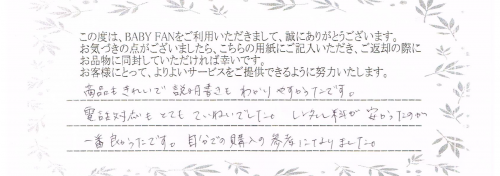 この度は、BABY FANをご利用いただきまして、誠にありがとうございます。
お気づきの点がございましたら、こちらの用紙にご記入いただき、ご返却の際に
お品物に同封していただければ幸いです。
お客様にとって、よりよいサービスをご提供できるように努力いたします。
商品もきれいで説明書きもわかりやすかったです。
電話対応もとてもていねいでした。レンタル料が安かったのが
一番良かったです。自分での購入の参考になりました。